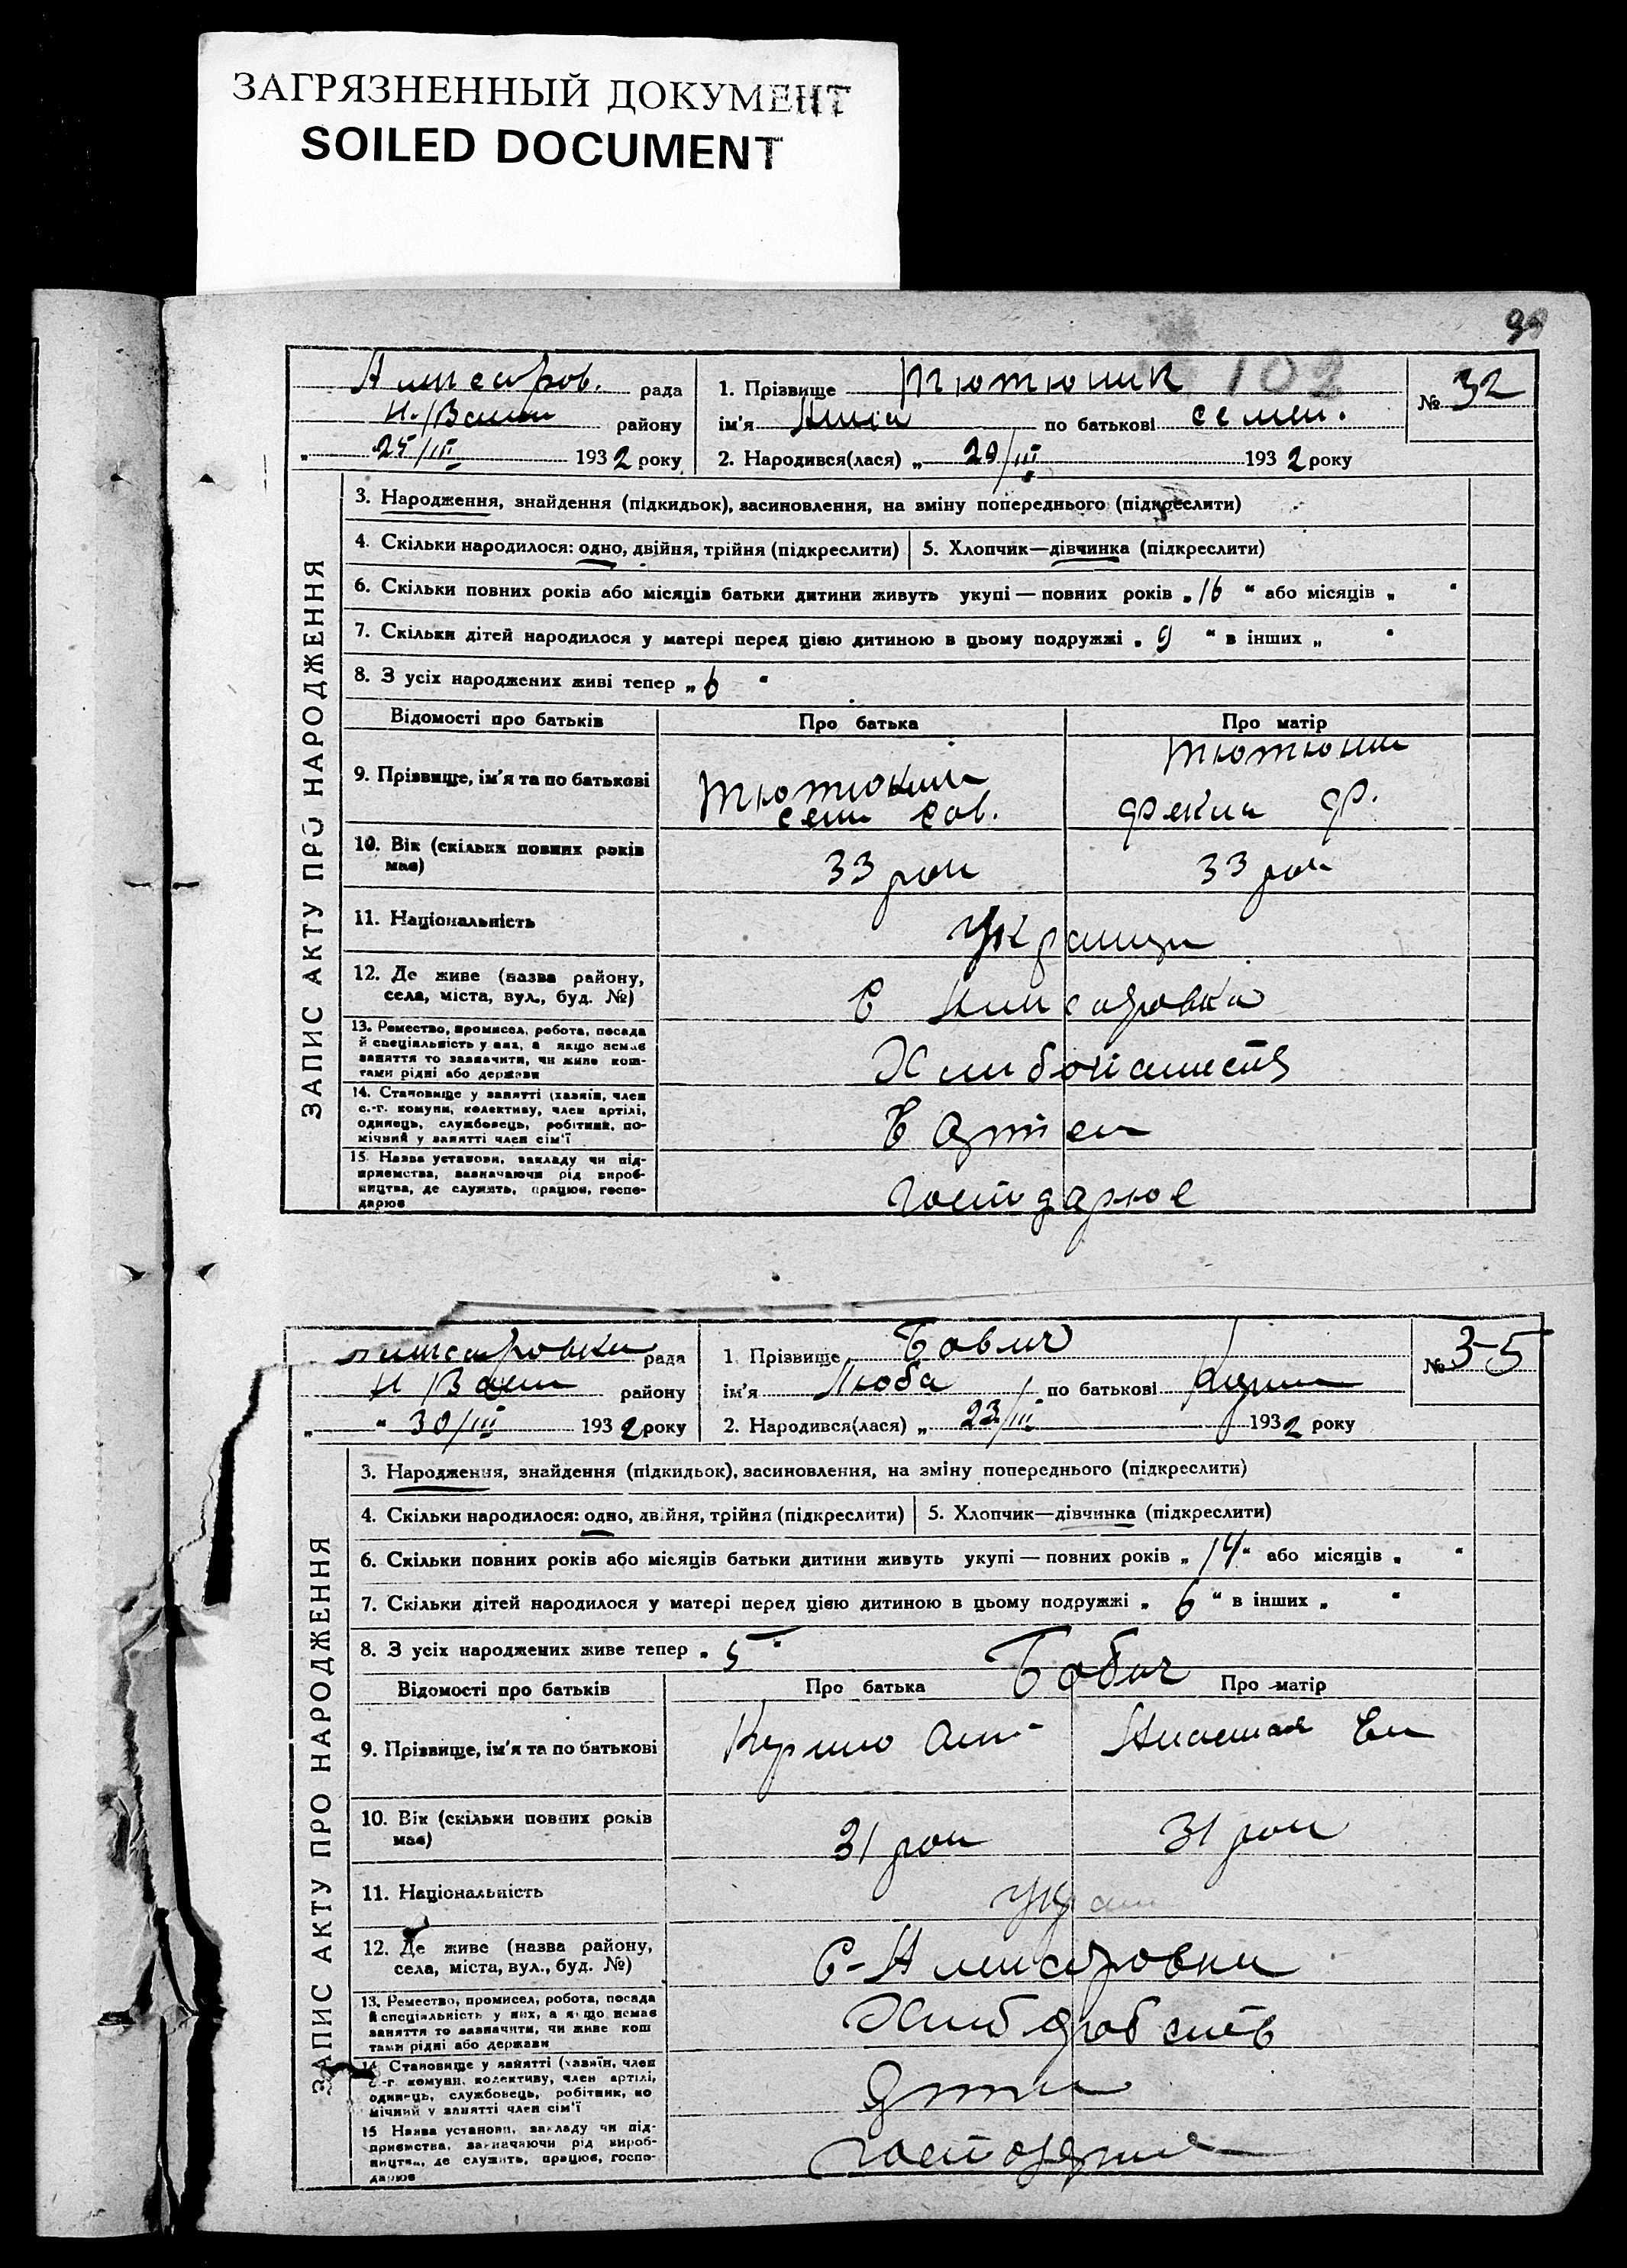 ЗАГРЯЗНЕННЫЙ ДОКУМЕНТ
SOILED DOCUMENT
99
рада
району
25/III 1932 року
1. Прізвище Тютюник 102
ім'я по батькові Семен.
2. Народився(лася) „ 20/III 1932 року
№ 32
ЗАПИС АКТУ ПРО НАРОДЖЕННЯ
3. Народження, знайдення (підкидьок), засиновлення, на зміну попереднього (підкреслити)
4. Скільки народилося: одно, двійня, трійня (підкреслити)
5. Хлопчик—дівчинка (підкреслити)
6. Скільки повних років або місяців батьки дитини живуть укупі — повних років „ 16 “ або місяців „ “
7. Скільки дітей народилося у матері перед цією дитиною в цьому подружжі „ 9 “ в інших „ “
8. З усіх народжених живі тепер „ 6 “
Відомості про батьків
Про батька
Про матір
9. Прізвище, ім'я та по батькові
10. Вік (скільки повних років
має)
33 роки
33 роки
11. Національність
Українци
12. Де живе (назва району,
села, міста, вул., буд. №)
13. Ремество, промисел, робота, посада
й спеціяльність у них, а якщо немає
заняття то зазначити, чи живе кош-
тами рідні або держави
14. Становище у занятті (хазяїн, член
с.-г. комуни, колективу, член артілі,
одинець, службовець, робітник, по-
мічний у занятті член сім'ї
15. Назва установи, закладу чи під-
приємства, зазначаючи рід вироб-
ництва, де служить, працює, госпо-
дарює
господарює
рада
району
„ 30/III 1932 року
1. Прізвище Бабич
ім'я Люба по батькові
2. Народився(лася) „ 23/III 1932 року
№ 35
ЗАПИС АКТУ ПРО НАРОДЖЕННЯ
3. Народження, знайдення (підкидьок), засиновлення, на зміну попереднього (підкреслити)
4. Скільки народилося: одно, двійня, трійня (підкреслити)
5. Хлопчик—дівчинка (підкреслити)
6. Скільки повних років або місяців батьки дитини живуть укупі — повних років „ 14 “ або місяців „ “
7. Скільки дітей народилося у матері перед цією дитиною в цьому подружжі „ 6 “ в інших „ “
8. З усіх народжених живе тепер „ 5 “
Бабич
Відомості про батьків
Про батька
Про матір
9. Прізвище, ім'я та по батькові
10. Вік (скільки повних років
має)
31 роки
31 роки
11. Національність
12. Де живе (назва району,
села, міста, вул., буд. №)
13. Ремество, промисел, робота, посада
й спеціяльність у них, а якщо немає
заняття то зазначити, чи живе кош
тами рідні або держави
14. Становище у занятті (хазяїн, член
с.-г. комуни, колективу, член артілі,
одинець, службовець, робітник, по
мічний у занятті член сім'ї
15 Назва установи, закладу чи під-
приємства, зазначаючи рід вироб-
ництва, де служить, працює, госпо-
дарює